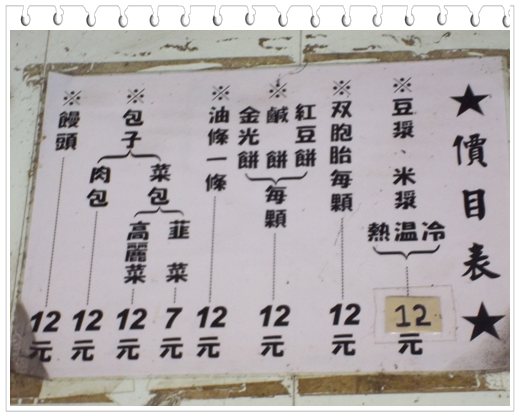 ★價目表★
※豆漿、米漿
冷 温 熱
12元
※双胞胎每顆
12元
※
紅豆餅
鹹餅
金光餅
每顆
12元
※油條一條
12元
※包子
菜包
韮菜
7元
高麗菜
12元
肉包
12元
※饅頭
12元